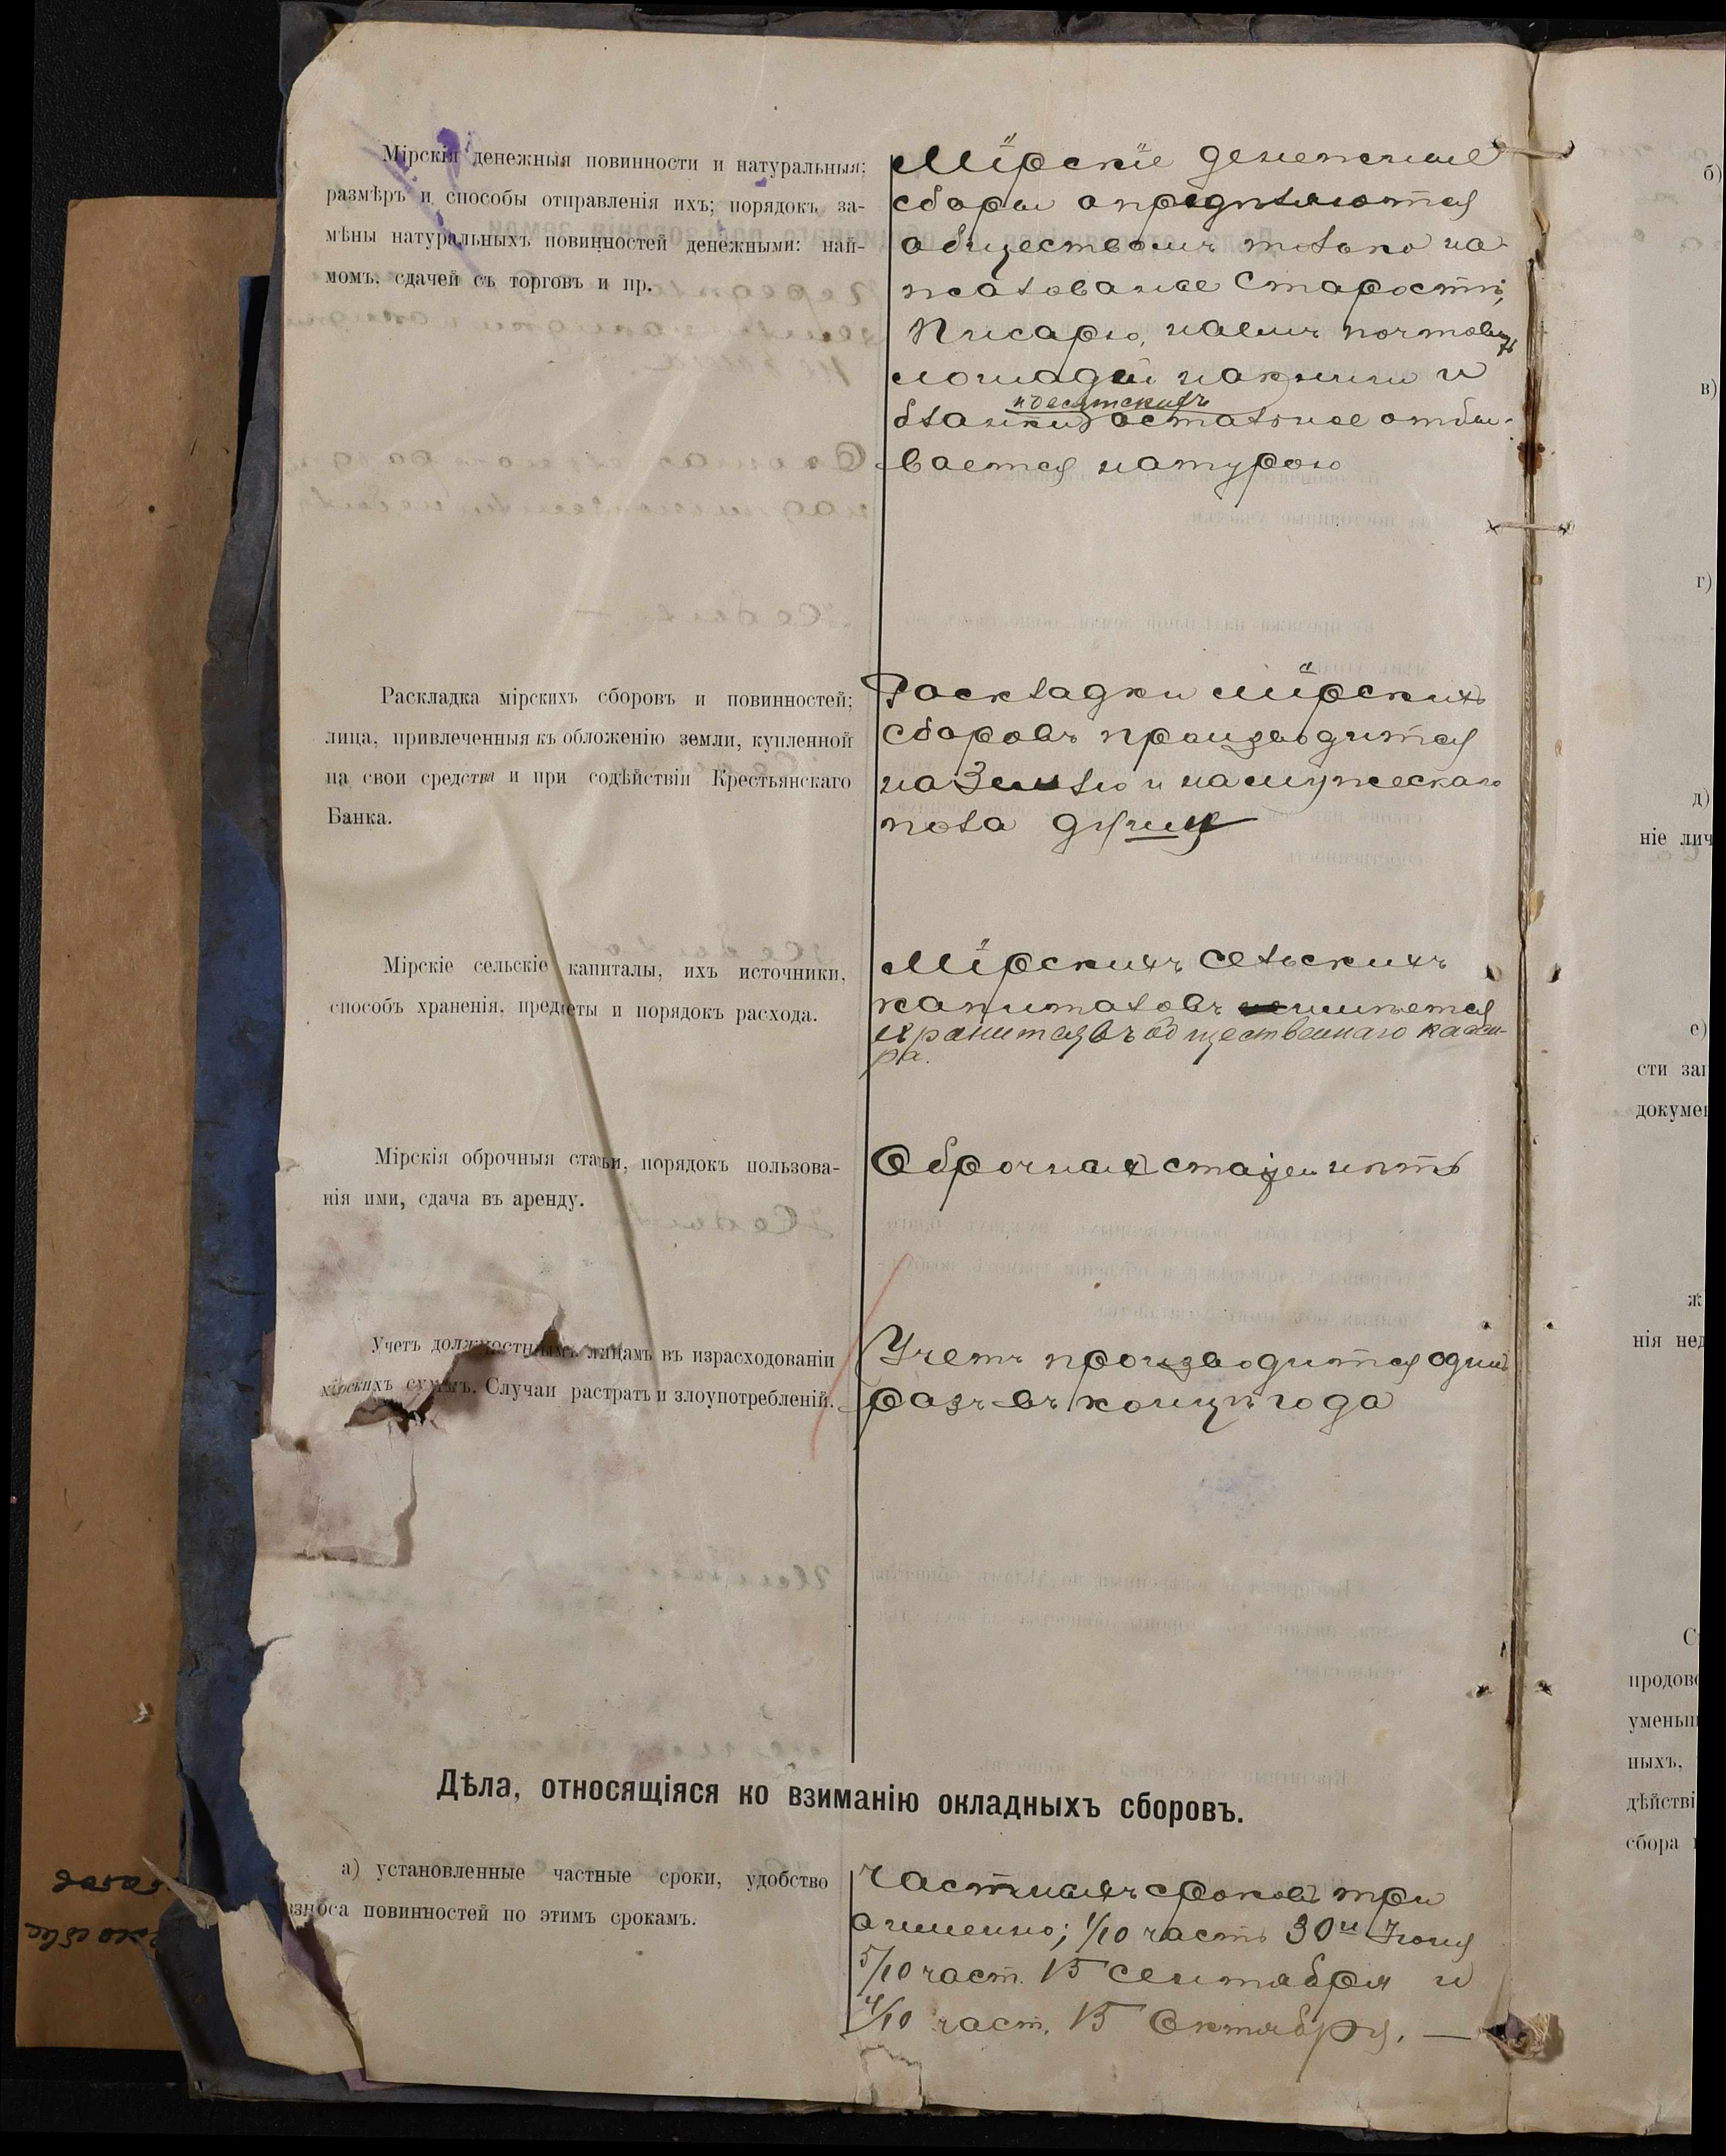 Мірскія денежныя повинности и натуральныя;
размѣръ и способы отправленія ихъ; порядокъ за-
мѣны натуральныхъ повинностей денежными: най-
момъ, сдачей съ торговъ и пр.
Мірскіе денежные
сборы опредѣляются
обществомъ только на
жалованье Старостѣ,
Писарю, наемъ почтовыхъ
лошадей на книги и
и десятскихъ
бланки остальное отбы-
вается натурою
Раскладка мірскихъ сборовъ и повинностей;
лица, привлеченныя къ обложенію земли, купленной
на свои средства и при содѣйствіи Крестьянскаго
Банка.
Раскладки мірскихъ
сборовъ производится
на Землю и на мужескаго
пола душу
Мірскіе сельскіе капиталы, ихъ источники,
способъ храненія, предметы и порядокъ расхода.
Мірскихъ сельскихъ
капиталовъ имѣется
хранится въ общественнаго касси-
ра.
Мірскія оброчныя статьи, порядокъ пользова-
нія ими, сдача въ аренду.
Оброчная статей нѣтъ
Учетъ должностнымъ лицамъ въ израсходованіи
мірскихъ суммъ. Случаи растратъ и злоупотребленій.
Учетъ производится одинъ
разъ въ концѣ года
Дѣла, относящіяся ко взиманію окладныхъ сборовъ.
а) установленные частные сроки, удобство
взноса повинностей по этимъ срокамъ.
Частныхъ сроковъ три
а именно; 1/10 часть 30го Іюня
5/10 част. 15 сентября и
4/10 част. 15 Октября. —
б)
в)
г)
д)
ніе лич
е)
сти за
докуме
ж
нія нед
продов
умень
ныхъ,
дѣйстві
сбора